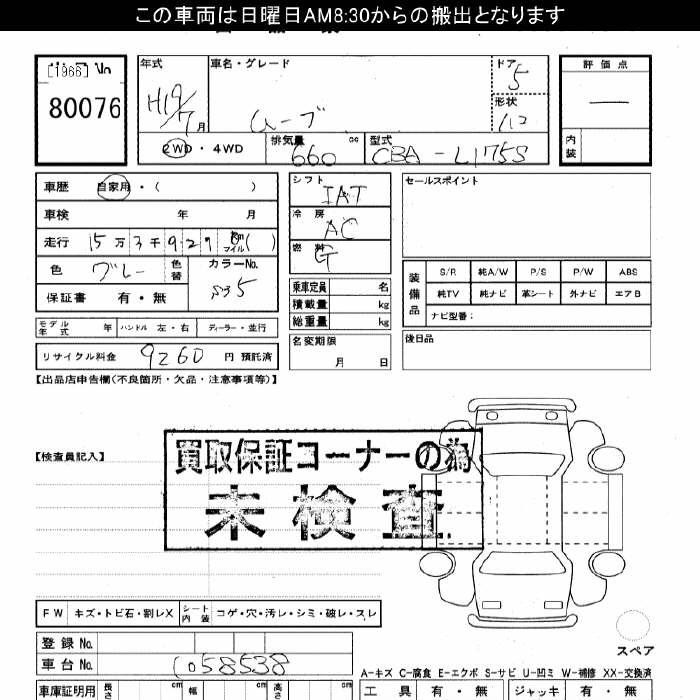 この車両は日曜日AM8:30からの搬出となります
[1966]
80076
年式 H19/7月
車名・グレード ムーブ
ドア 5
形状
評価点 —
内装
2WD・4WD
排気量 660 cc
型式 CBA-L175S
車歴 自家用・( )
車検 年 月
走行 15万3千929 Km マイル( )
色 グレー 色替
カラーNo. S35
保証書 有・無
シフト IAT
冷房 AC
燃料 G
乗車定員 名
積載量 kg
総重量 kg
名変期限 月 日
セールスポイント
装備品
S/R 純A/W P/S P/W ABS
純TV 純ナビ 革シート 外ナビ エアB
ナビ型番:
後日品
モデル年式 年 ハンドル 左・右 ディーラー・並行
リサイクル料金 9260 円 預託済
【出品店申告欄(不良箇所・欠品・注意事項等)】
【検査員記入】
買取保証コーナーの為
未検査
FW キズ・トビ石・割レX シート内装 コゲ・穴・汚レ・シミ・破レ・スレ
登録No.
車台No. 058538
スペア
A-キズ C-腐食 E-エクボ S-サビ U-凹ミ W-補修 XX-交換済
車庫証明用 長さ cm 幅 cm 高さ cm
工具 有・無 ジャッキ 有・無